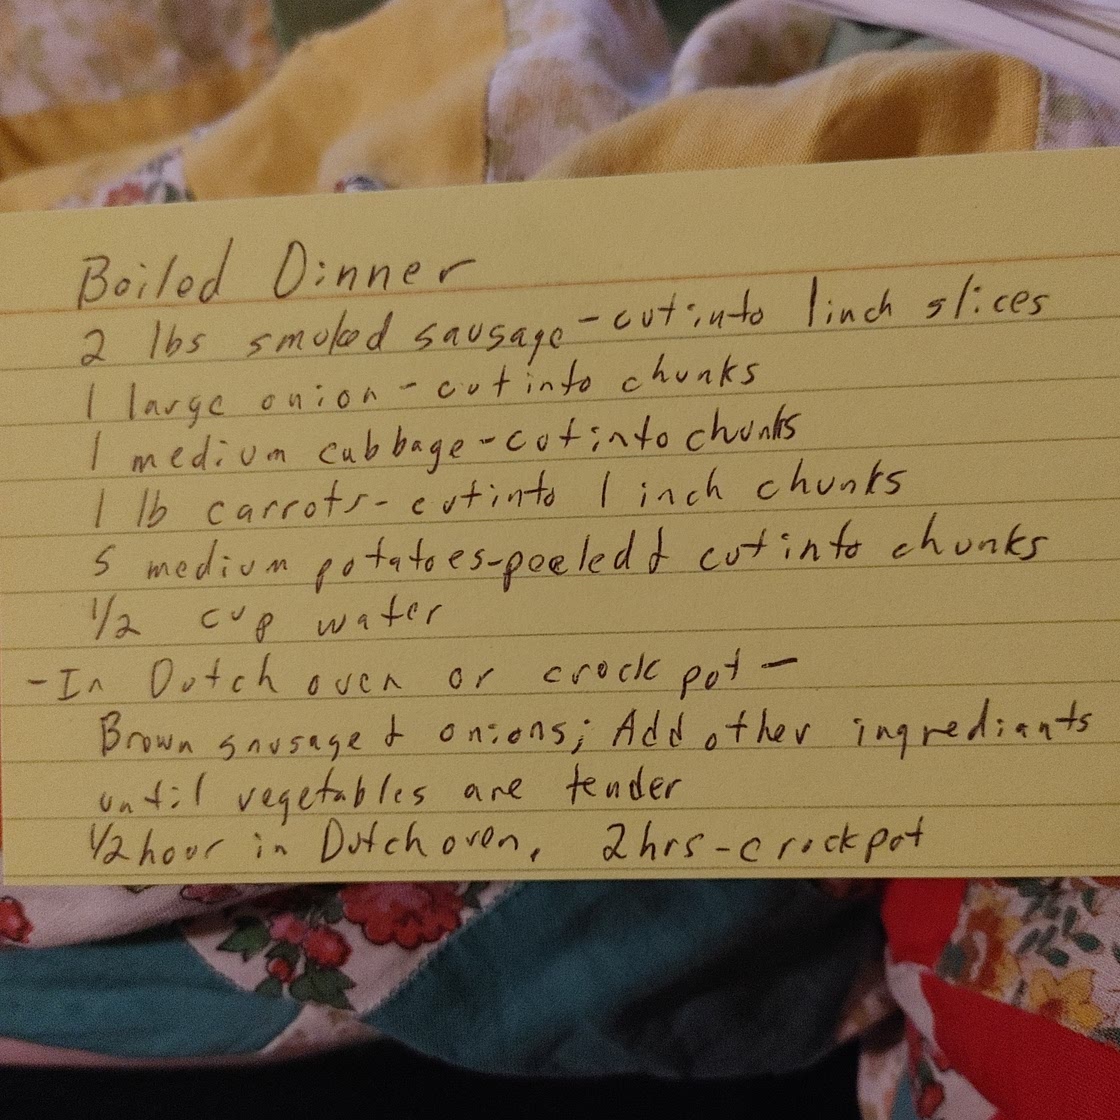 Boiled Dinner
2 lbs smoked sausage - cut into 1 inch slices
1 large onion - cut into chunks
1 medium cabbage - cut into chunks
1 lb carrots - cut into 1 inch chunks
5 medium potatoes - peeled & cut into chunks
1/2 cup water
- In Dutch oven or crock pot -
Brown sausage & onions; Add other ingrediants
until vegetables are tender
1/2 hour in Dutch oven, 2hrs - crockpot